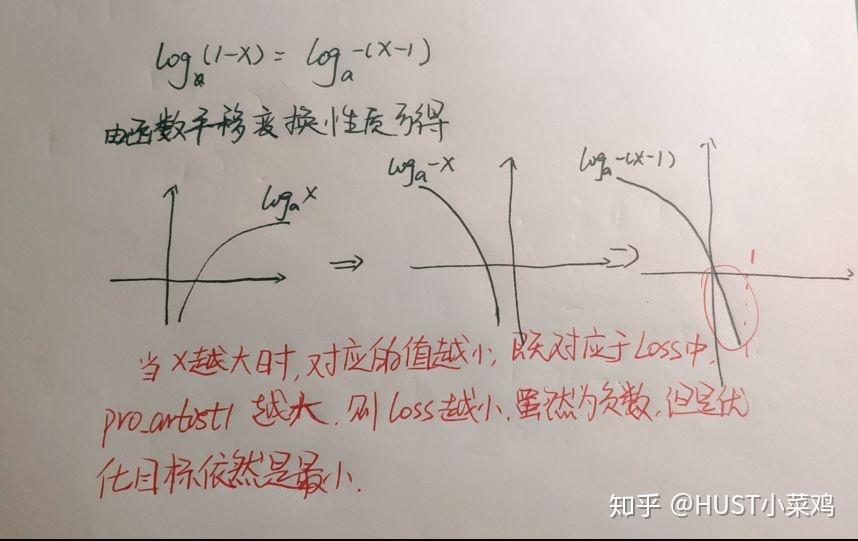 logₐ(1-x) = logₐ-(x-1)
由函数平移变换性质可得
logₐx
⇒
logₐ-x
⇒
logₐ-(x-1)
1
当x越大时,对应的值越小,既对应于Loss中,
pro_artist1 越大,则Loss越小,虽然为负数,但是优
化目标依然是最小.
知乎 @HUST小菜鸡